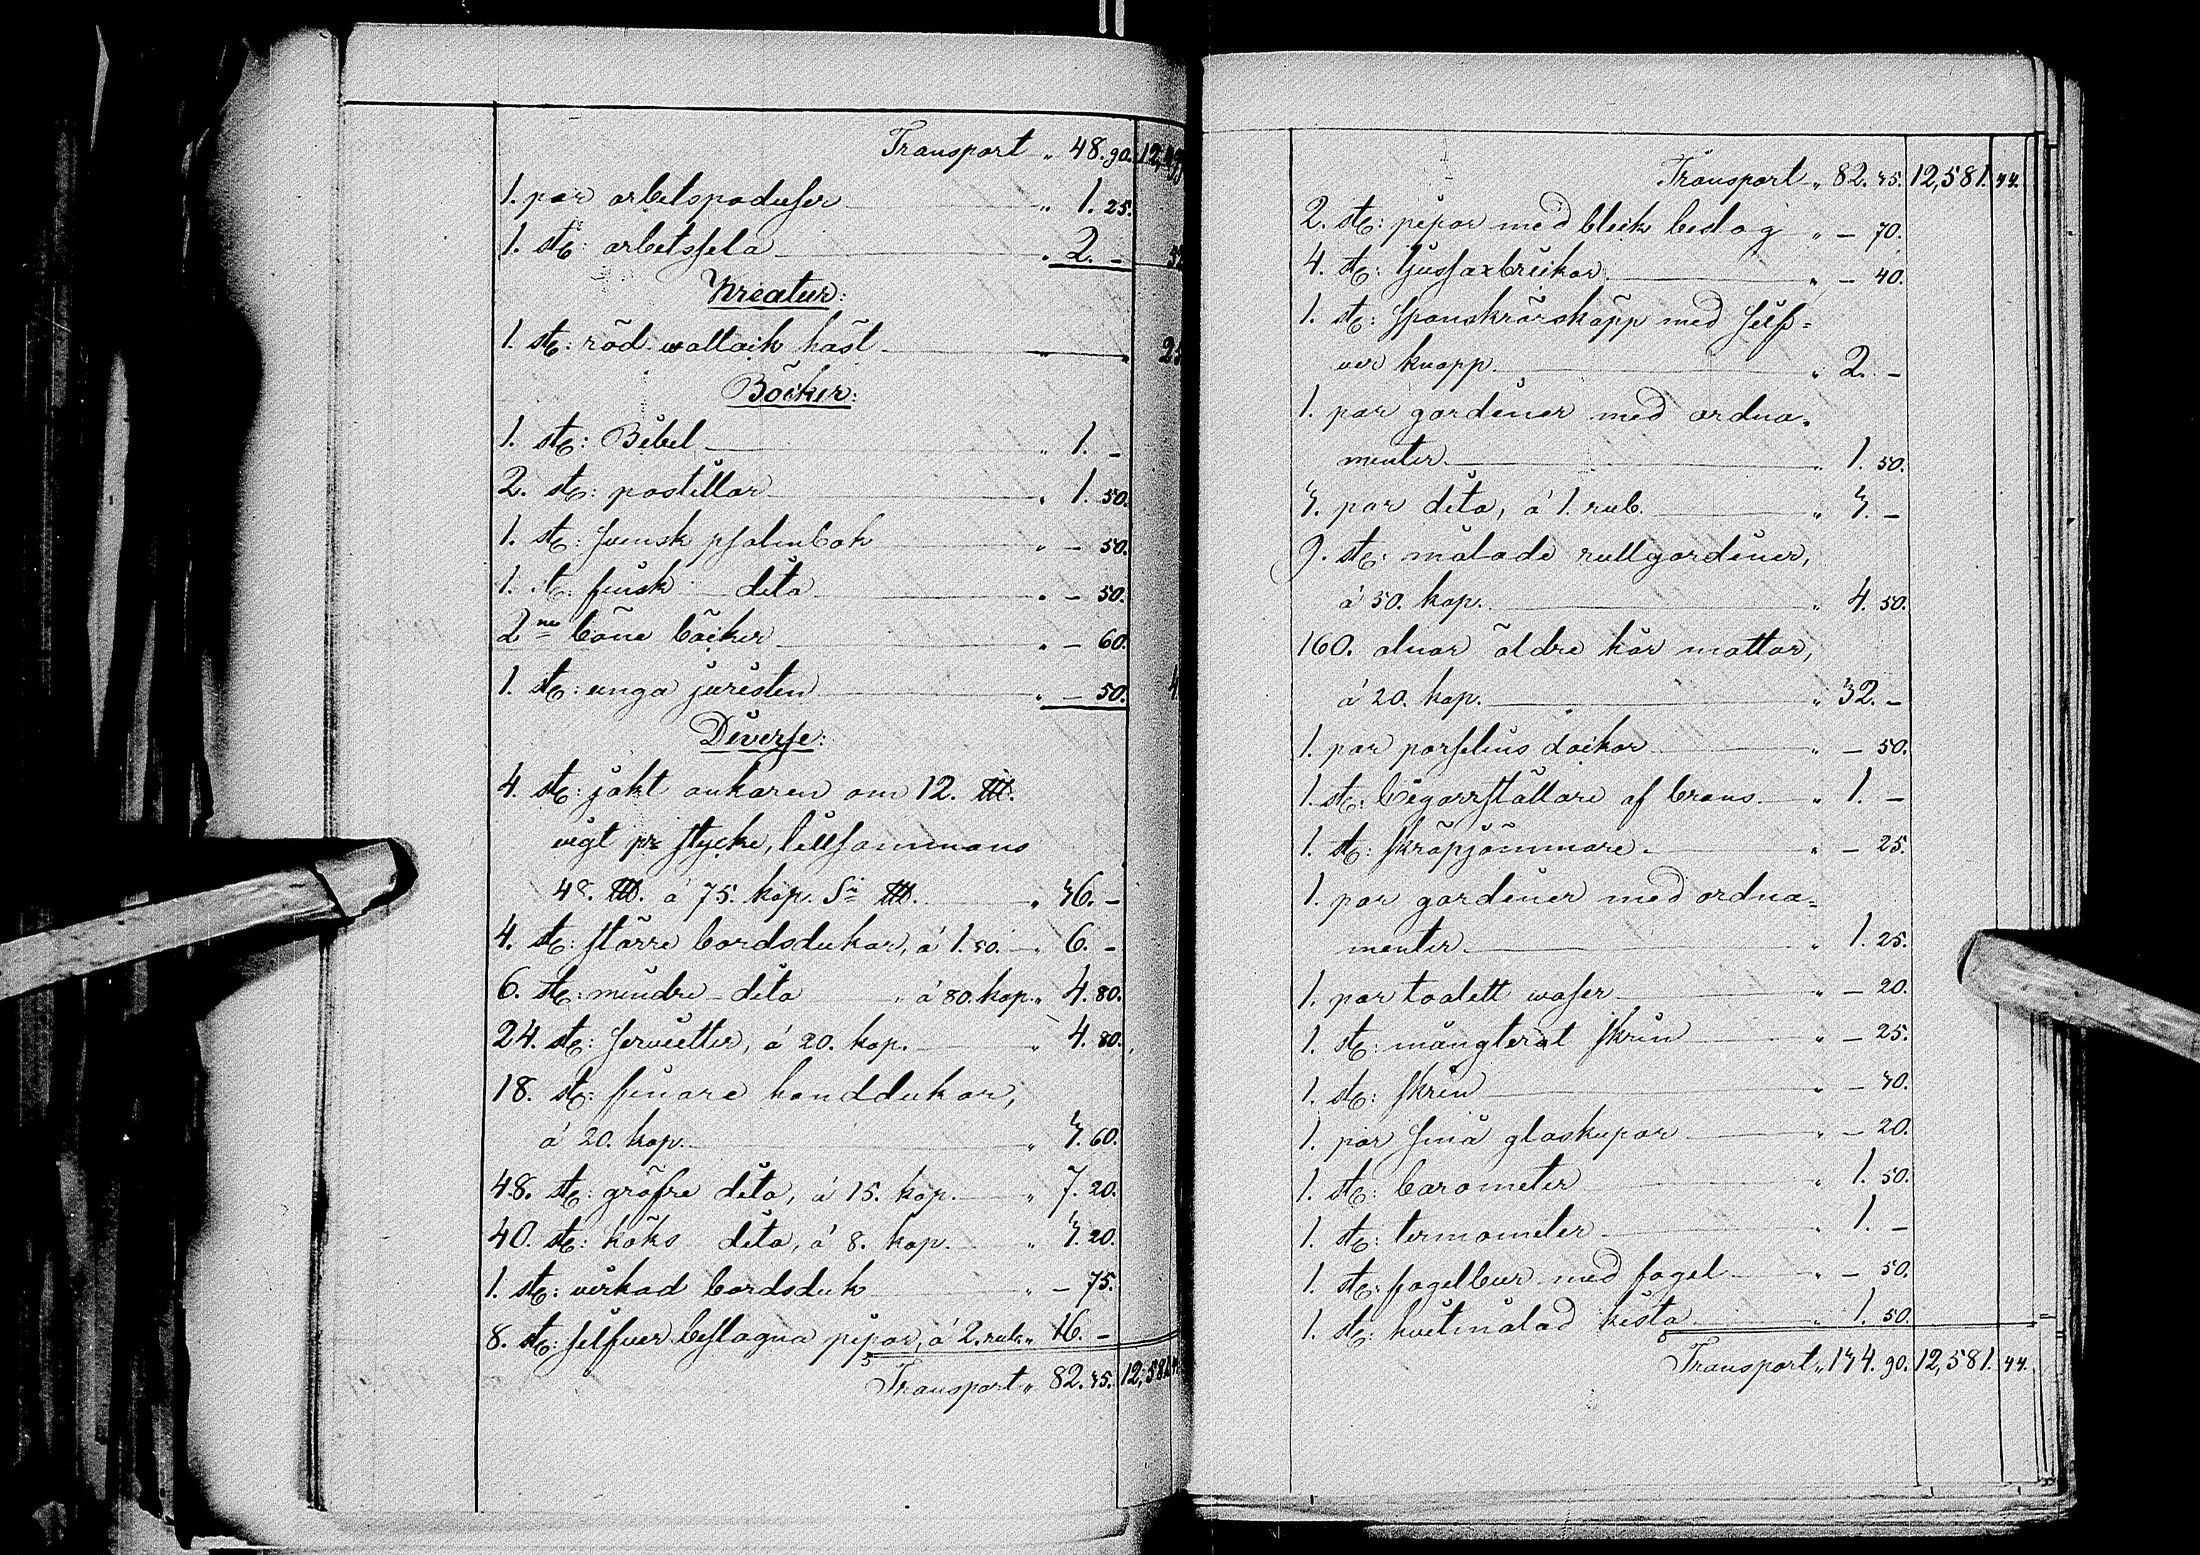 Transport „ 48. 90. 12,
1. par arbetspaduser „ 1. 25.
1. st: arbetssela „ 2. –
Kreatur:
1. st: röd wallack häst „ „
Böcker:
1. st: Bibel „ 1. –
2. st: postillor „ 1. 50.
1. st: svensk psalmbok „ – 50.
1. st: finsk dito „ – 50.
2ne böne böcker „ – 60.
1. st: unga juristen „ – 50.
Diverse:
4. st: jakt ankaren om 12. L℔.
vigt pr stycke, tillsammans
48. L℔. á 75. kop. S. L℔. „ 36. –
4. st: större bordsdukar, á 1. 50. „ 6. –
6. st: mindre dito „ á 80. kop. „ 4. 80.
24. st: servietter, á 20. kop. „ 4. 80.
18. st: finare handdukar,
á 20. kop. „ 3. 60.
48. st: gröfre dito, á 15. kop. „ 7. 20.
40. st: köks dito, á 8. kop. „ 3. 20.
1. st: virkad bordsduk „ – 75.
8. st: silfver beslagna pipor, á 2. rub. „ 16. –
Transport „ 82. 35. 12,581.
Transport „ 82. 35. 12,581. 44.
2. st: pipor med bleck beslag „ – 70.
4. st: ljussaxbrickor „ – 40.
1. st: spanskrörskäpp med silf=
ver knapp „ 2. –
1. par gardiner med ordna=
menter „ 1. 50.
3. par dito, á 1. rub. „ 3. –
9. st: målade rullgardiner,
á 50. kop. „ 4. 50.
160. alnar äldre hår mattor,
á 20. kop. „ 32. –
1. par porslins dockor „ – 50.
1. st: Cigarrställare af brons „ 1. –
1. st: skräpjömmare „ – 25.
1. par gardiner med ordna=
menter „ 1. 25.
1. par toalett waser „ – 20.
1. st: mångterat skrin „ – 25.
1. st: skrin „ – 30.
1. par små glaskupor „ – 20.
1. st: barometer „ 1. 50.
1. st: termometer „ 1. –
1. st: fogelbur med fogel „ – 50.
1. st: hvitmålad kista „ 1. 50.
Transport „ 134. 90. 12,581. 44.